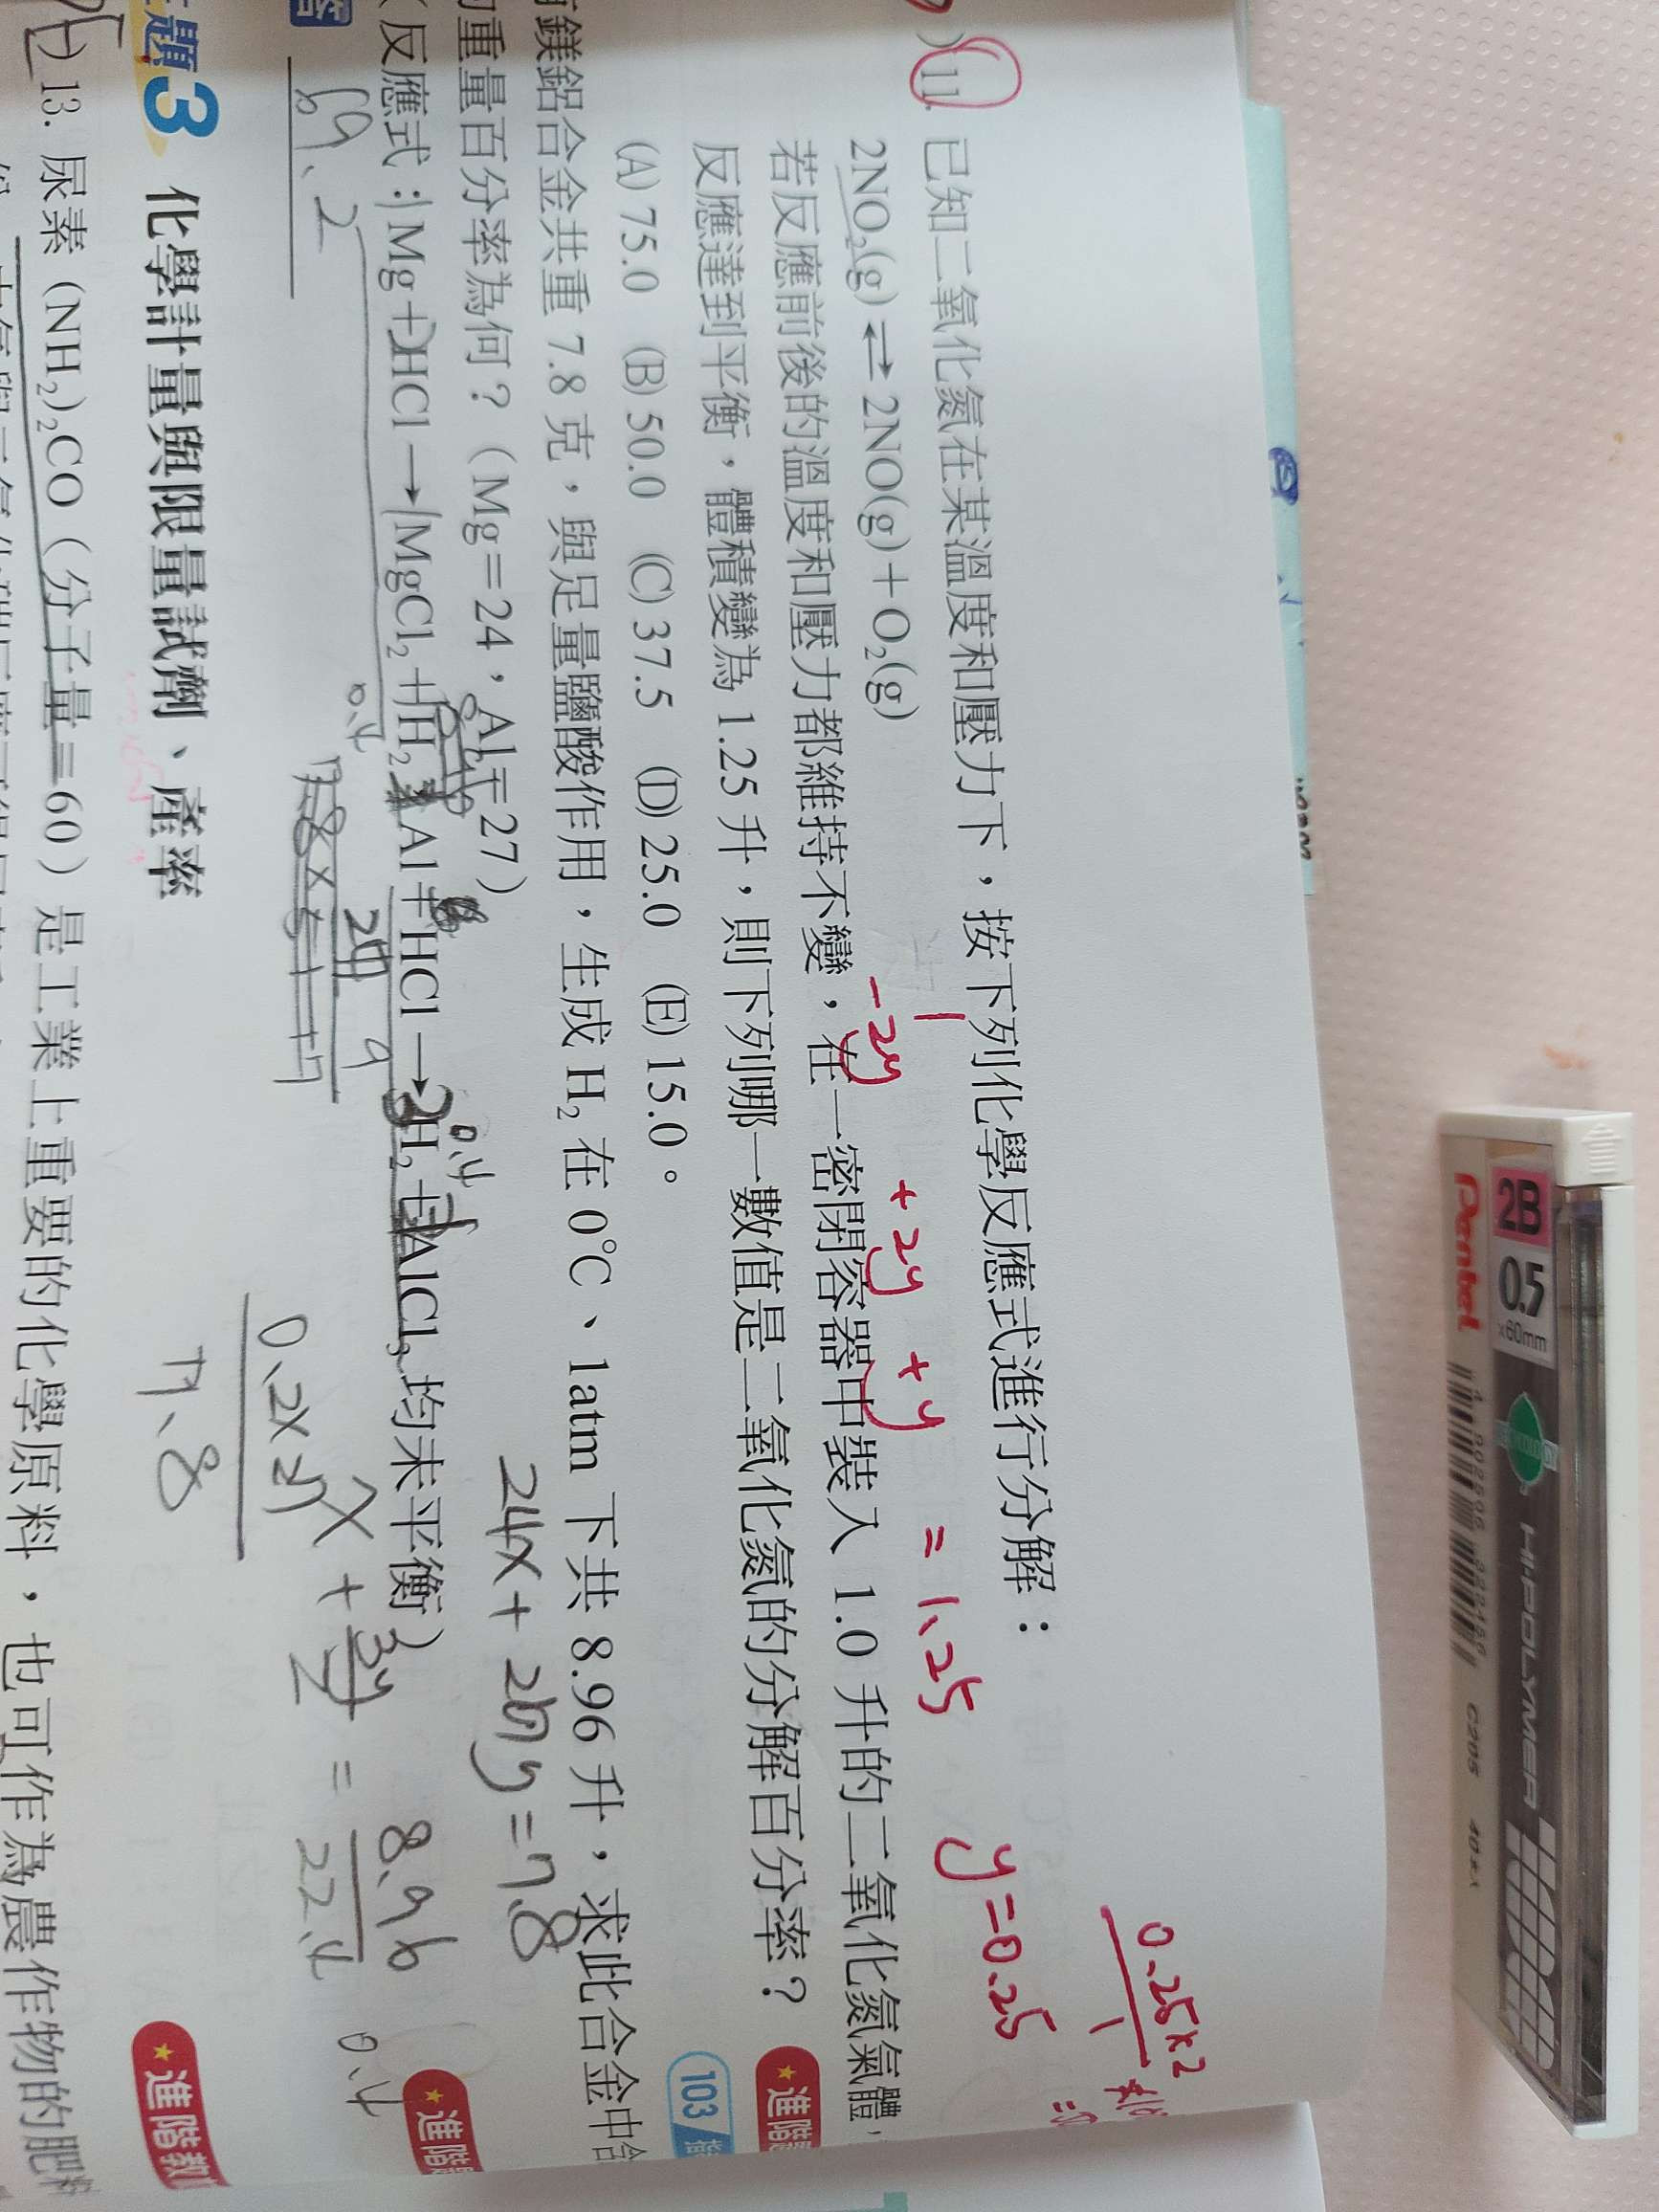 11. 已知二氧化氮在某溫度和壓力下，按下列化學反應式進行分解：
2NO₂(g) ⇌ 2NO(g)＋O₂(g)
-2y +2y +y = 1.25 y=0.25
0.25×2
1
若反應前後的溫度和壓力都維持不變，在一密閉容器中裝入 1.0 升的二氧化氮氣體，
反應達到平衡，體積變為 1.25 升，則下列哪一數值是二氧化氮的分解百分率？
進階
(A) 75.0 (B) 50.0 (C) 37.5 (D) 25.0 (E) 15.0。
103
鎂鋁合金共重 7.8 克，與足量鹽酸作用，生成 H₂ 在 0℃、1atm 下共 8.96 升，求此合金中
重量百分率為何？（Mg＝24，Al＝27）
24x + 27y = 7.8
進階
（反應式：1Mg＋2HCl→1MgCl₂＋1H₂、Al＋HCl→H₂＋AlCl₃ 均未平衡）
69.2
x + 3y/2 = 8.96/22.4
0.4
0.2×27
7.8
題3 化學計量與限量試劑、產率
進階
13. 尿素 (NH₂)₂CO（分子量＝60）是工業上重要的化學原料，也可作為農作物的肥
2B
0.5
×60mm
Pentel
HI-POLYMER
C205